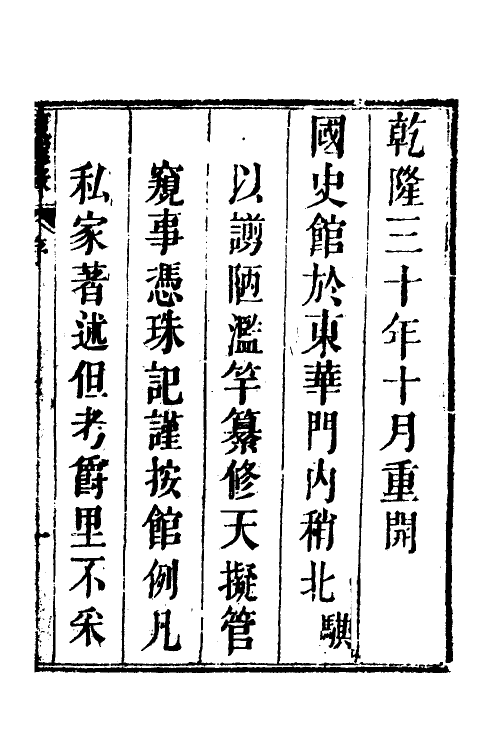 乾隆三十年十月重開
國史館於東華門內稍北騏
以謭陋濫竽纂修天擬管
窺事憑珠記謹按館例凡
私家著述但考爵里不采